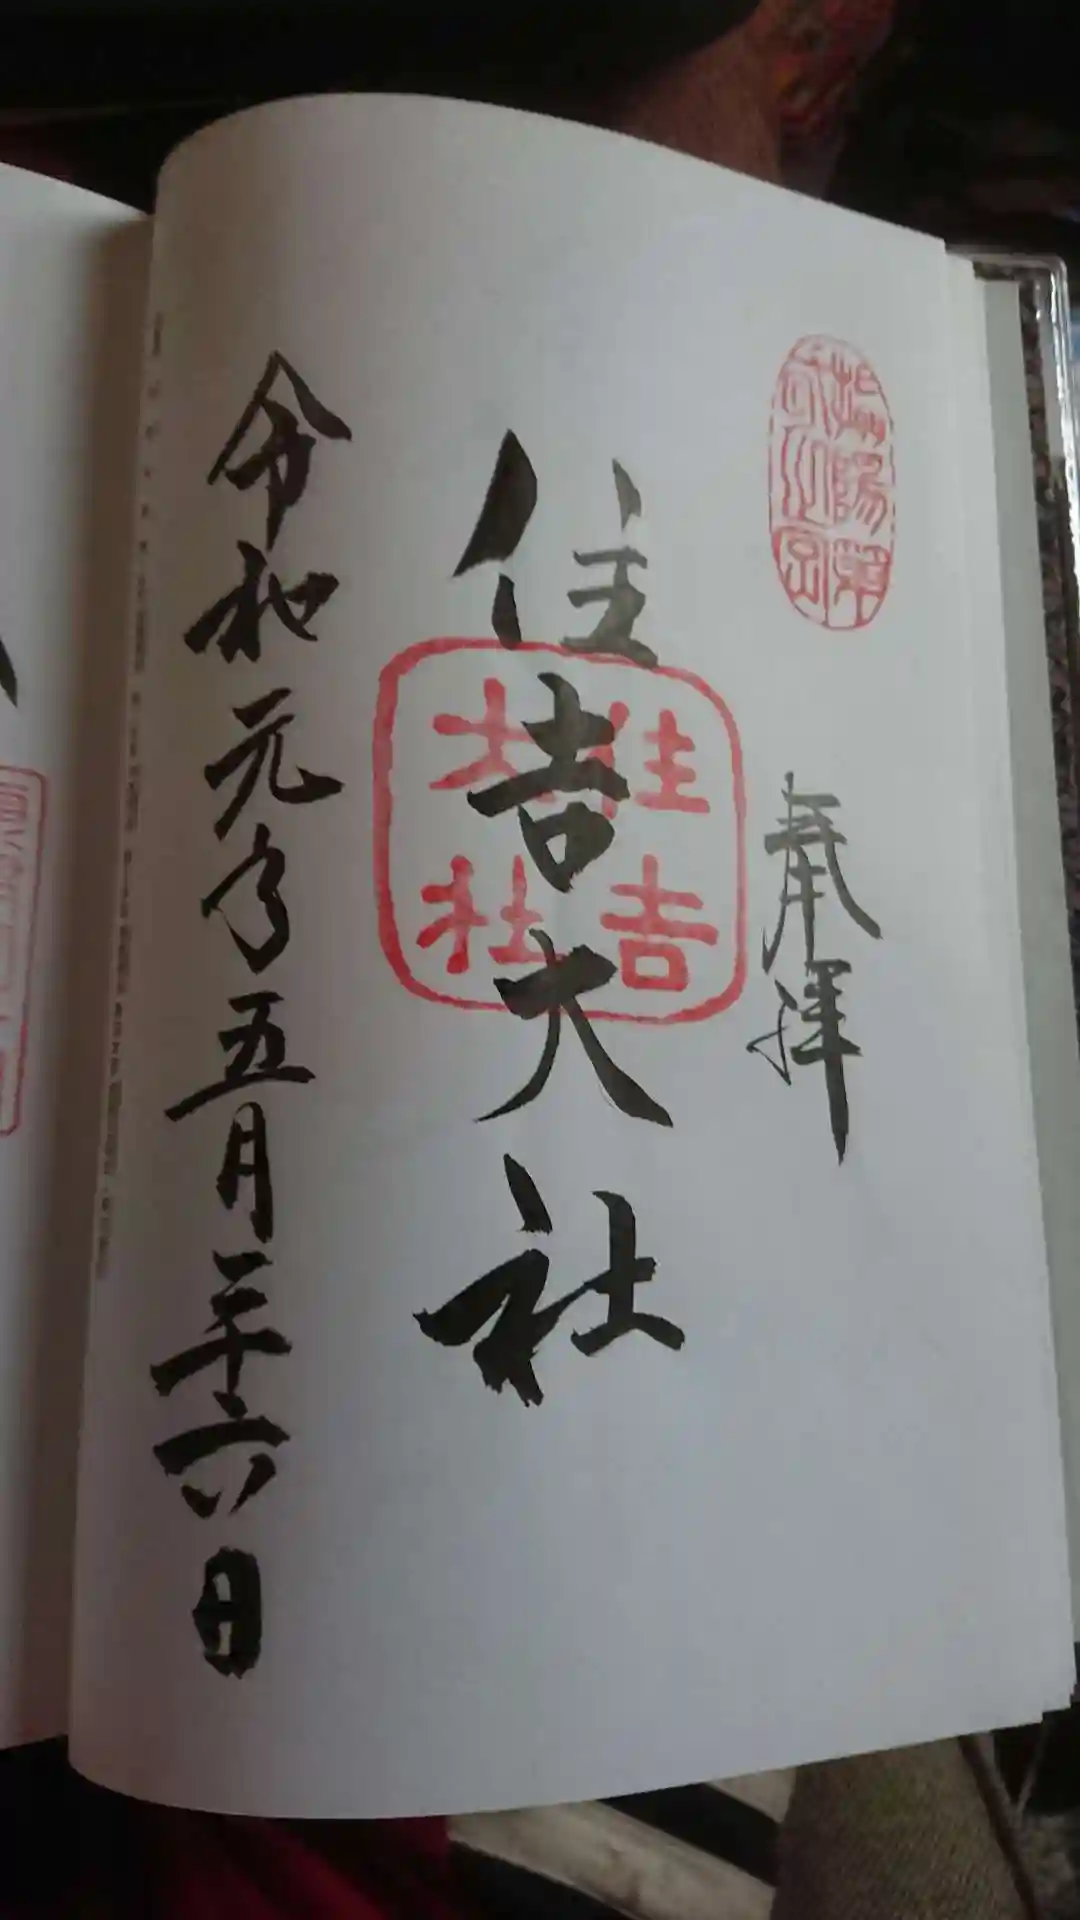 奉拝
住吉大社
住吉
大社
令和元年五月二十六日